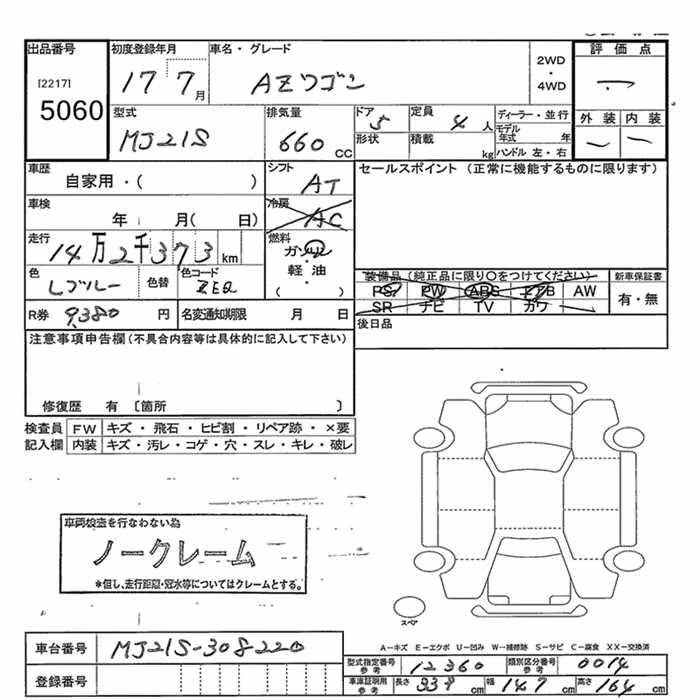 出品番号 初度登録年月 車名・グレード 評価点
[2217] 17 7月 AZワゴン 2WD・4WD
5060
型式 排気量 ドア 5 定員 4人 ディーラー・並行 外装 内装
MJ21S 660cc 形状 積載 kg モデル年式 年
ハンドル 左・右
車歴 シフト セールスポイント (正常に機能するものに限ります)
自家用・( ) AT
車検 冷房
年 月( 日) AC
走行 燃料
14万2千373km ガソリン・軽油
色 色替 色コード ( ) 装備品(純正品に限り○をつけてください) 新車保証書
Lブルー ZEQ PS PW ABS エアB AW 有・無
R券 9,380円 名変通知期限 月 日 SR ナビ TV カワ
注意事項申告欄(不具合内容等は具体的に記入して下さい) 後日品
修復歴 有 〔箇所 〕
検査員 FW キズ・飛石・ヒビ割・リペア跡・×要
記入欄 内装 キズ・汚レ・コゲ・穴・スレ・キレ・破レ
車両検査を行なわない為
ノークレーム
*但し、走行距離・冠水等についてはクレームとする。
スペア
A−キズ E−エクボ U−凹み W−補修跡 S−サビ C−腐食 XX−交換済
車台番号 MJ21S-308220 型式指定番号 参考 12360 類別区分番号 参考 0014
登録番号 車庫証明用 参考 長さ 339cm 幅 147cm 高さ 164cm